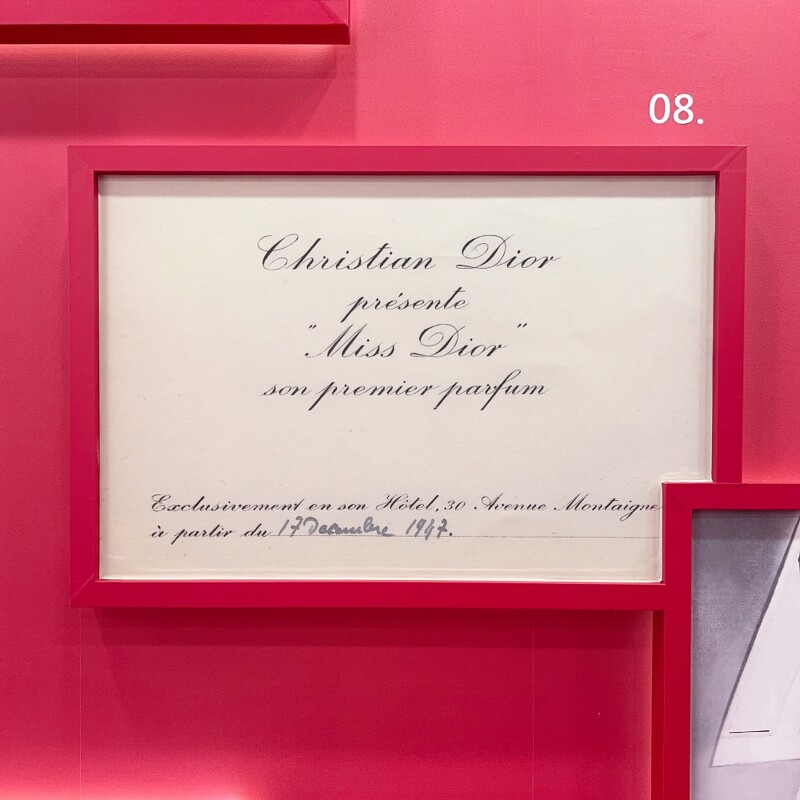 08.
Christian Dior
présente
"Miss Dior"
son premier parfum
Exclusivement en son Hôtel, 30 Avenue Montaigne
à partir du 17 Decembre 1947.